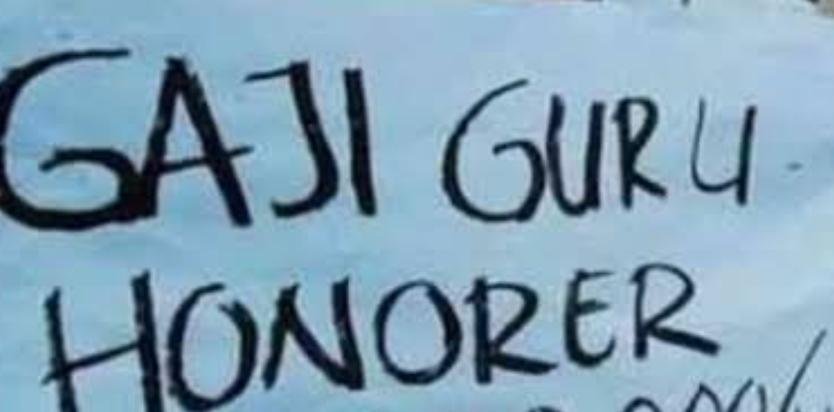 GAJI GURU
HONORER